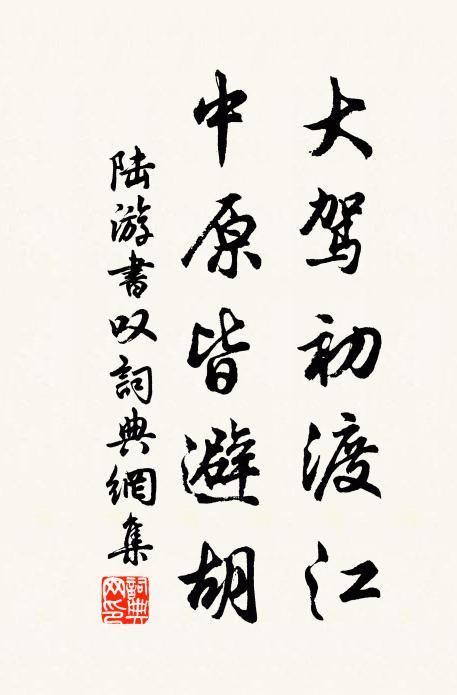 大驾初渡江
中原皆避胡
陆游书叹词典網集
詞典网印